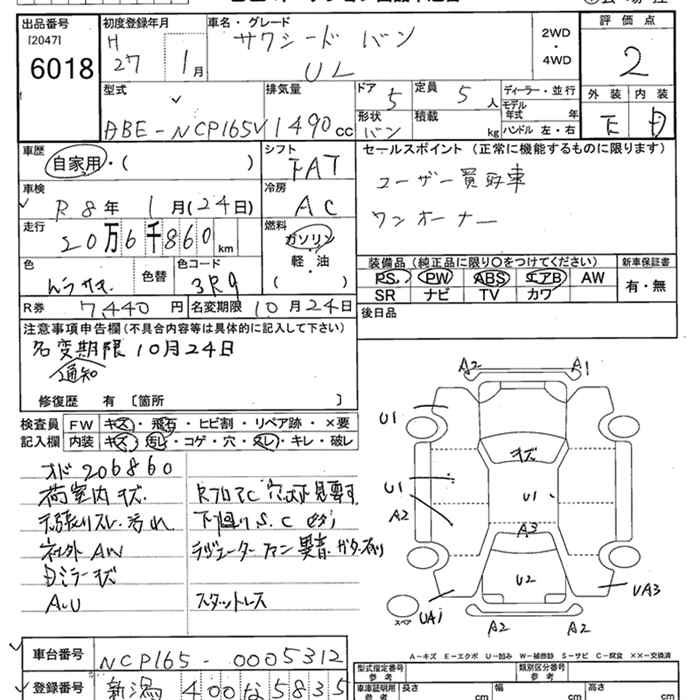 出品番号
[2047]
6018
初度登録年月
H
27 1月
車名・グレード
サクシード バン
UL
2WD
・
4WD
評価点
2
外装 内装
E D
型式
DBE-NCP165V
排気量
1490cc
ドア
5
定員
5人
形状
バン
積載
kg
ディーラー・並行
モデル年式 年
ハンドル 左・右
車歴
自家用・( )
シフト
FAT
セールスポイント (正常に機能するものに限ります)
ユーザー買取車
ワンオーナー
車検
R8年 1月(24日)
冷房
AC
走行
20万6千860km
燃料
ガソリン
軽・油
( )
色
色替
色コード
3R9
装備品 (純正品に限り○をつけてください)
PS PW ABS エアB AW
SR ナビ TV カワ
新車保証書
有・無
R券 7440円
名変期限 10月24日
後日品
注意事項申告欄(不具合内容等は具体的に記入して下さい)
名変期限10月24日
通知
修復歴 有 〔箇所 〕
検査員 FW キズ・飛石・ヒビ割・リペア跡・×要
記入欄 内装 キズ・汚レ・コゲ・穴・スレ・キレ・破レ
オド206860
荷室内キズ
天張りスレ・汚れ
社外AW
Dミラーキズ
A.U
RフロアC 穴 下見要す
下回りS.C
ラジエーターファン異音・ガタ有り
スタットレス
A2 A1
U1
キズ
U1
A2
U1
A3
U2
UA1
UA3
スペア
A2 A2
A-キズ E-エクボ U-凹み W-補修跡 S-サビ C-腐食 ××-交換済
車台番号 NCP165-0005312
登録番号 新潟 400な5835
型式指定番号 参考
類別区分番号 参考
車庫証明用 参考
長さ cm 幅 cm 高さ cm